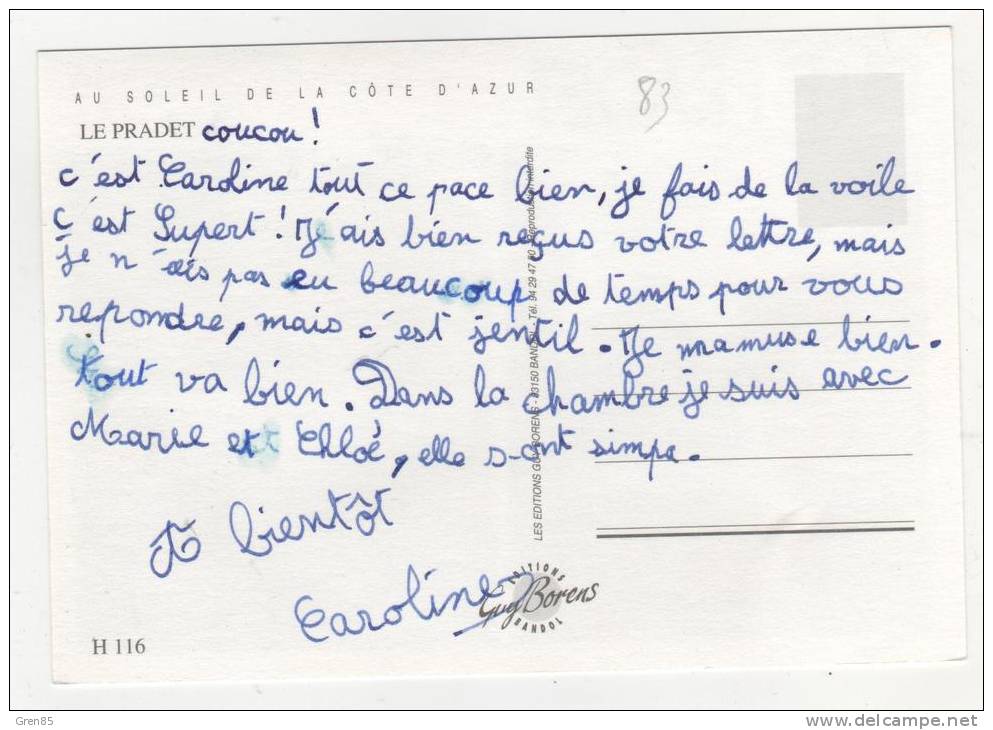 AU SOLEIL DE LA CÔTE D'AZUR
83
LE PRADET coucou!
c'est Caroline tout ce pace bien, je fais de la voile
c'est Supert! J'ais bien reçus votre lettre, mais
je n'ais pas eu beaucoup de temps pour vous
repondre, mais c'est jentil. Je mamuse bien.
tout va bien. Dans la chambre je suis avec
Marie et Chloé, elle s-ont simpa.
A bientôt
Caroline
LES EDITIONS GUY BORENS - 83150 BANDOL - Tél. 94 29 47 00 - Reproduction interdite
EDITIONS
Guy Borens
BANDOL
H 116
Gren85
www.delcampe.net